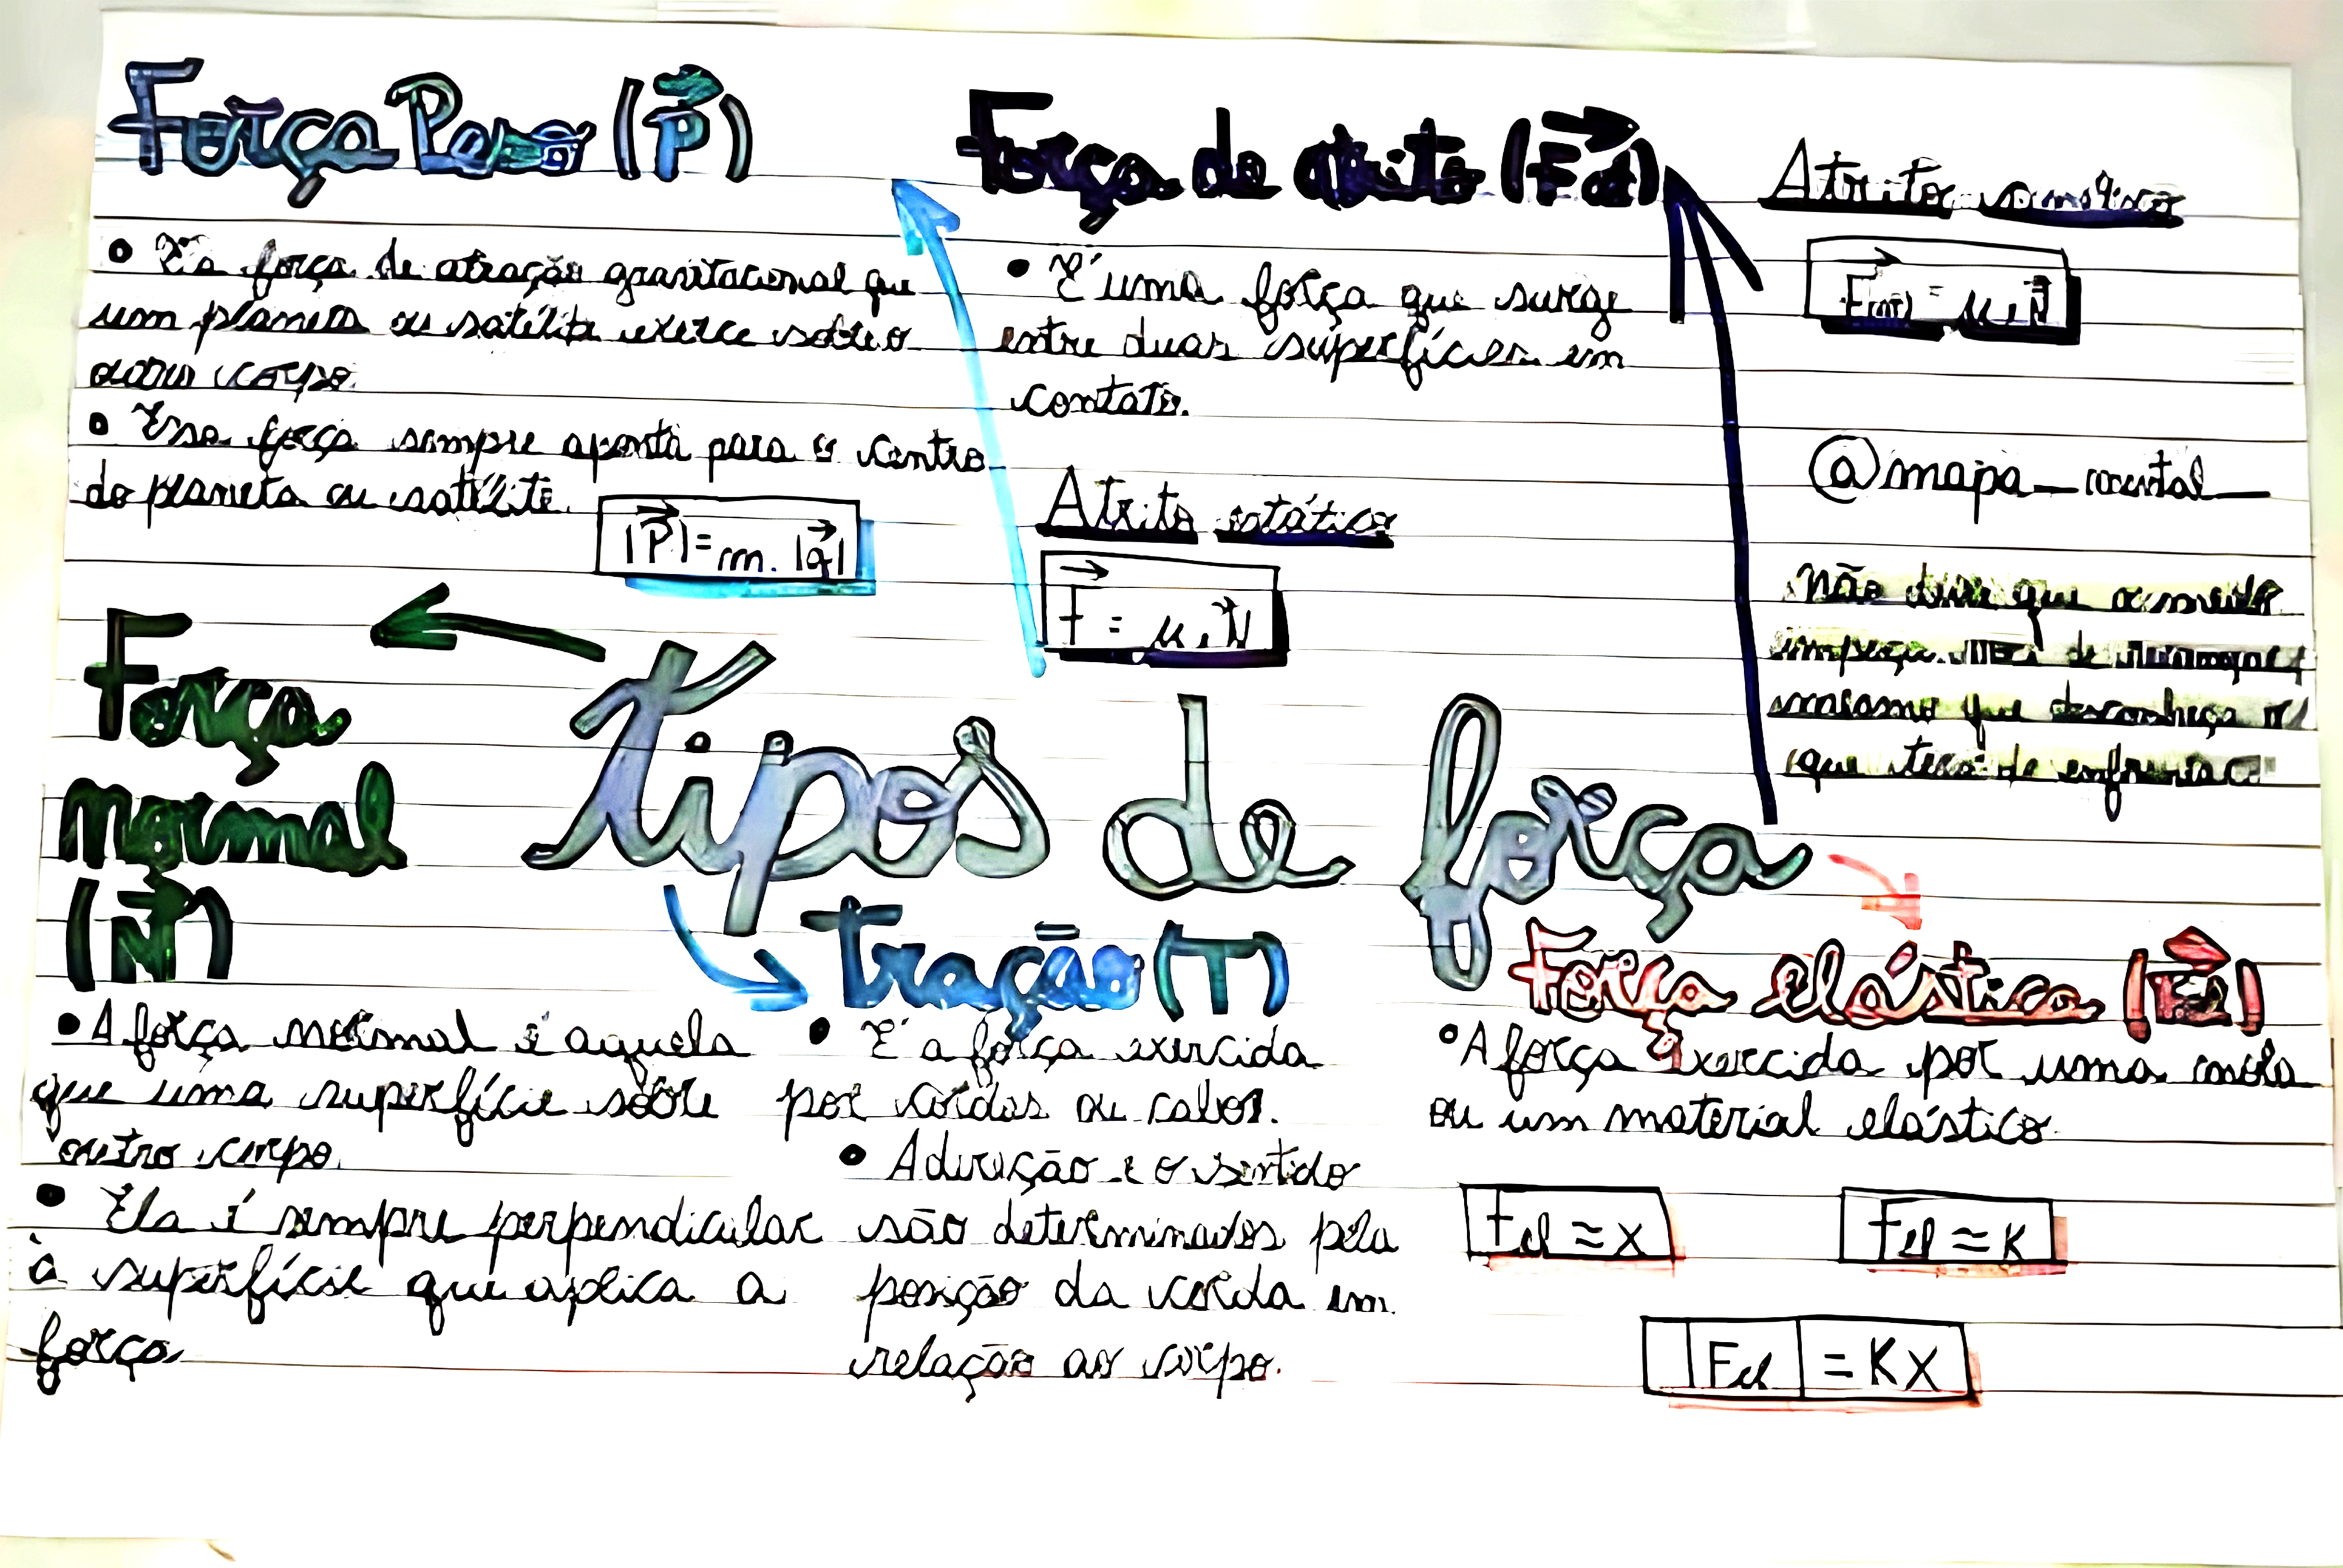 Força Peso (P)
• É a força de atração gravitacional que
um planeta ou satélite exerce sobre o
outro corpo.
• Essa força sempre aponta para o centro
do planeta ou satélite.
|P| = m. |g|
Força de atrito (Fat)
• É uma força que surge
entre duas superfícies em
contato.
Atrito estático
F = μ.N
Atrito
F(at) = μ.N
@mapa_mental_
não deixe que o medo
impeça de
mesmo que desconheça o
que terá de enfrentar
tipos de força
Força
normal
(N)
• A força normal é aquela
que uma superfície sobre
outro corpo.
• Ela é sempre perpendicular
à superfície que aplica a
força
tração (T)
• É a força exercida
por cordas ou cabos.
• A direção e o sentido
são determinados pela
posição da corda em
relação ao corpo.
Força elástica (Fel)
• A força exercida por uma mola
ou um material elástico
Fel ≈ x
Fel ≈ K
|Fel| = Kx